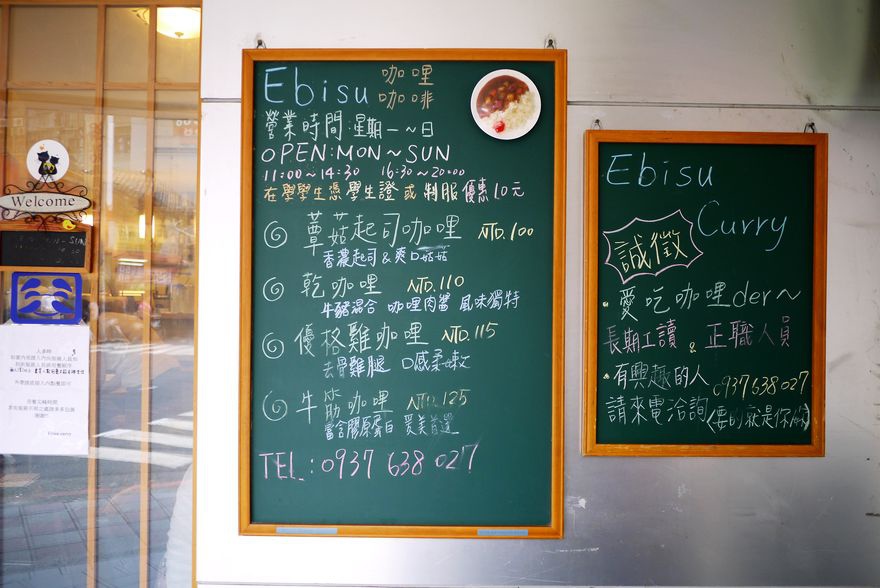 Ebisu 咖哩
咖啡
營業時間:星期一~日
OPEN:MON~SUN
11:00~14:30 16:30~20:00
在學學生憑學生證或制服優惠10元
蕈菇起司咖哩 NTD.100
香濃起司&爽口菇菇
乾咖哩 NTD.110
牛豬混合 咖哩肉醬 風味獨特
優格雞咖哩 NTD.115
去骨雞腿 口感柔嫩
牛筋咖哩 NTD.125
富含膠原蛋白 愛美首選
TEL.:0937 638 027
Ebisu
Curry
誠徵
·愛吃咖哩der~
長期工讀 & 正職人員
·有興趣的人 0937638027
請來電洽詢(要的就是你
Welcome